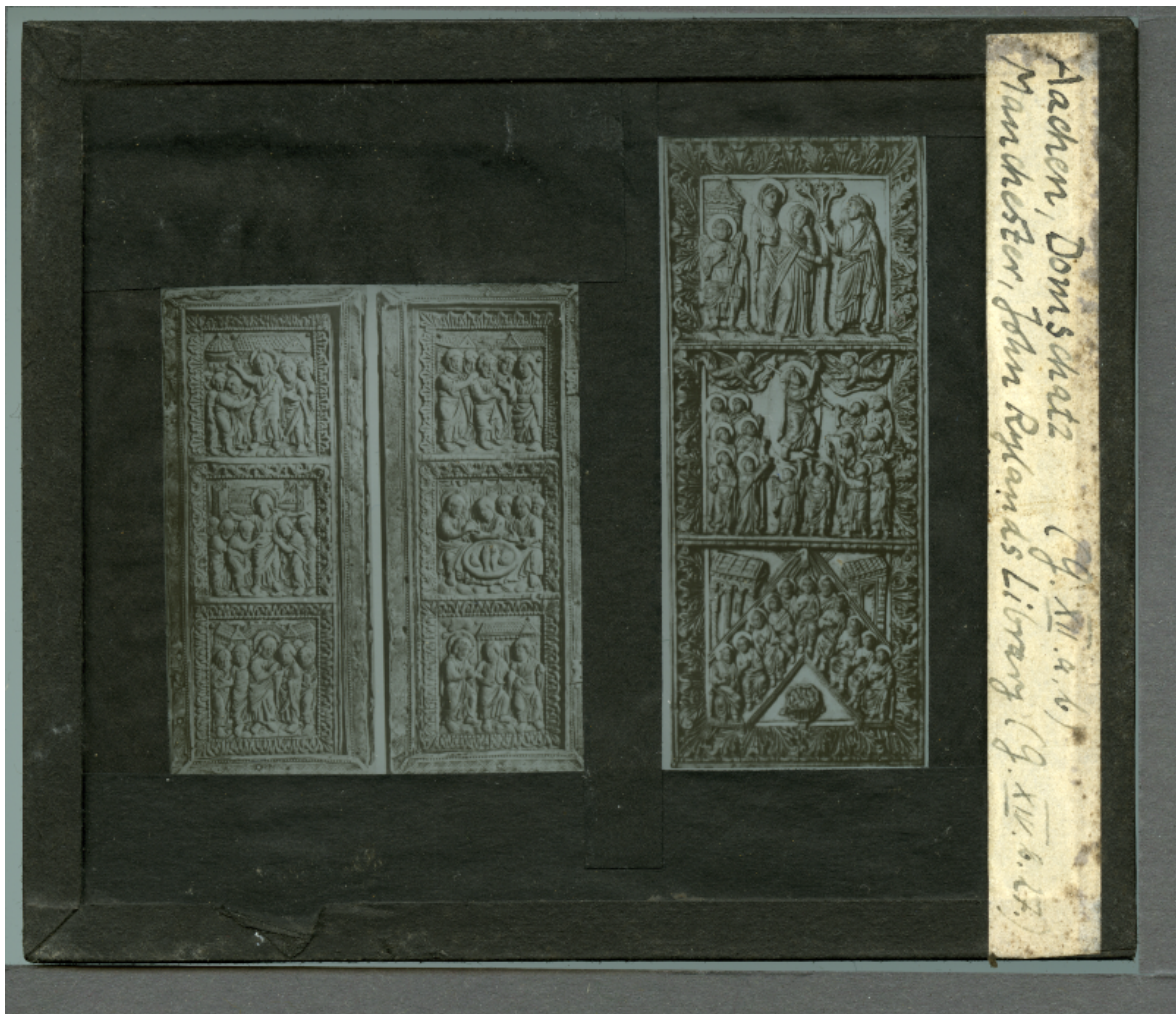 Aachen, Domschatz (G. XII. a, b)
Manchester, John Rylands Library (G. XIV. b. 27.)